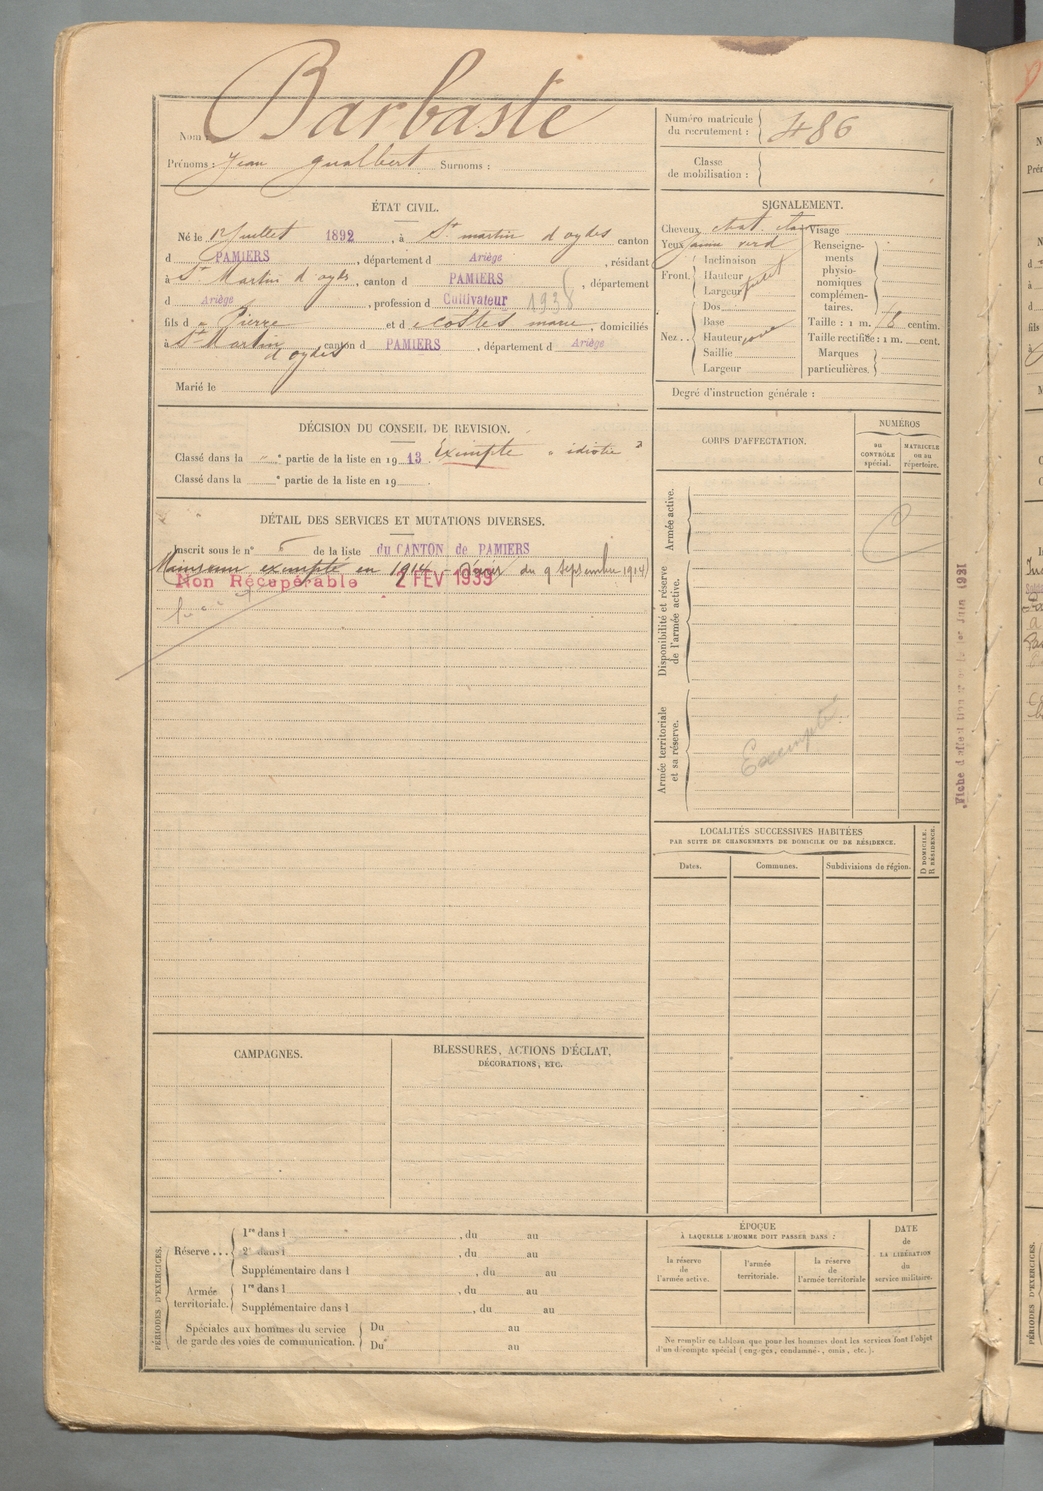 Nom : Barbaste
Prénoms : Jean Gualbert Surnoms :
Numéro matricule du recrutement : 486
Classe de mobilisation :
ÉTAT CIVIL.
Né le 12 Juillet 1892, à St martin d'oydes canton
d PAMIERS, département d Ariège, résidant
à St Martin d'oydes, canton d PAMIERS, département
d Ariège, profession d Cultivateur 1938
fils de Pierre et de Costes marie, domiciliés
à St Martin d'oydes canton d PAMIERS, département d Ariège
Marié le
SIGNALEMENT.
Cheveux chat. clair Visage
Yeux jaune verd
Front. Inclinaison
Hauteur
Largeur
Nez.. Dos
Base
Hauteur
Saillie
Largeur
Renseignements physionomiques complémentaires.
Taille : 1 m. centim.
Taille rectifiée : 1 m. cent.
Marques particulières.
Degré d'instruction générale :
DÉCISION DU CONSEIL DE REVISION.
Classé dans la " partie de la liste en 1913. Exempté "idiotie"
Classé dans la e partie de la liste en 19
DÉTAIL DES SERVICES ET MUTATIONS DIVERSES.
Inscrit sous le n° 6 de la liste du CANTON de PAMIERS
Maintenu exempté en 1914 - du 9 Septembre 1914)
Non Récupérable 2 FEV 1939
CORPS D'AFFECTATION.
NUMÉROS
AU CONTRÔLE spécial.
MATRICULE OU AU répertoire.
Armée active.
Disponibilité et réserve de l'armée active.
Armée territoriale et sa réserve.
Exempté
LOCALITÉS SUCCESSIVES HABITÉES
PAR SUITE DE CHANGEMENTS DE DOMICILE OU DE RÉSIDENCE.
Dates.
Communes.
Subdivisions de région.
D DOMICILE.
R RÉSIDENCE.
CAMPAGNES.
BLESSURES, ACTIONS D'ÉCLAT,
DÉCORATIONS, ETC.
PÉRIODES D'EXERCICES.
Réserve ... 1re dans l , du au
2e dans l , du au
Supplémentaire dans l , du au
Armée territoriale. 1re dans l , du au
Supplémentaire dans l , du au
Spéciales aux hommes du service de garde des voies de communication. Du au
Du au
ÉPOQUE
À LAQUELLE L'HOMME DOIT PASSER DANS :
la réserve de l'armée active.
l'armée territoriale.
la réserve de l'armée territoriale
DATE de LA LIBÉRATION du service militaire.
Ne remplir ce tableau que pour les hommes dont les services font l'objet
d'un décompte spécial (engagés, condamnés, omis, etc.).